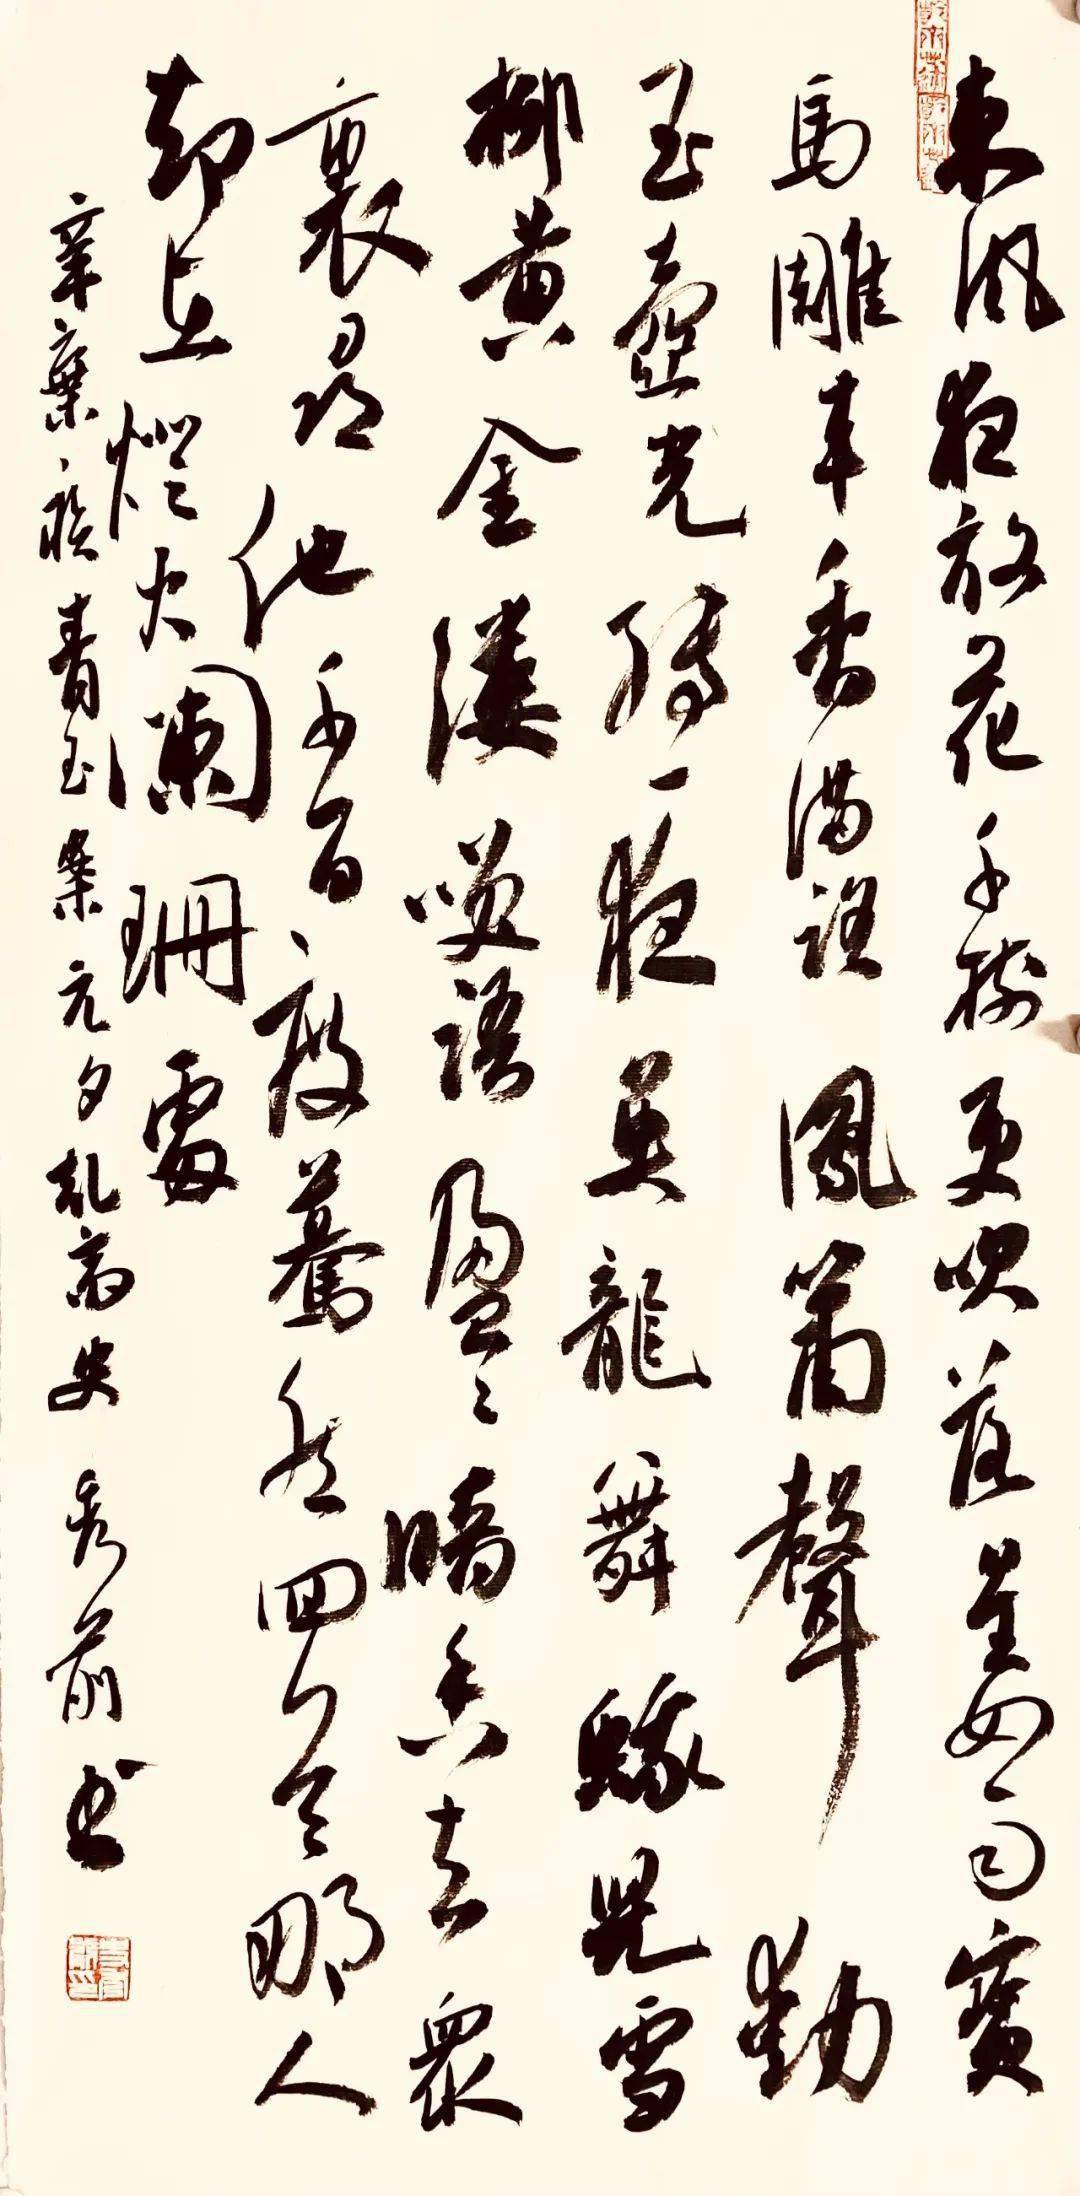 東風夜放花千樹更吹落星如雨寶
馬雕車香滿路鳳簫聲動
玉壺光轉一夜魚龍舞蛾兒雪
柳黃金縷笑語盈々暗香去衆
裏尋他千百度驀然回首那人
却在燈火闌珊處
辛棄疾青玉案元夕 秀前书